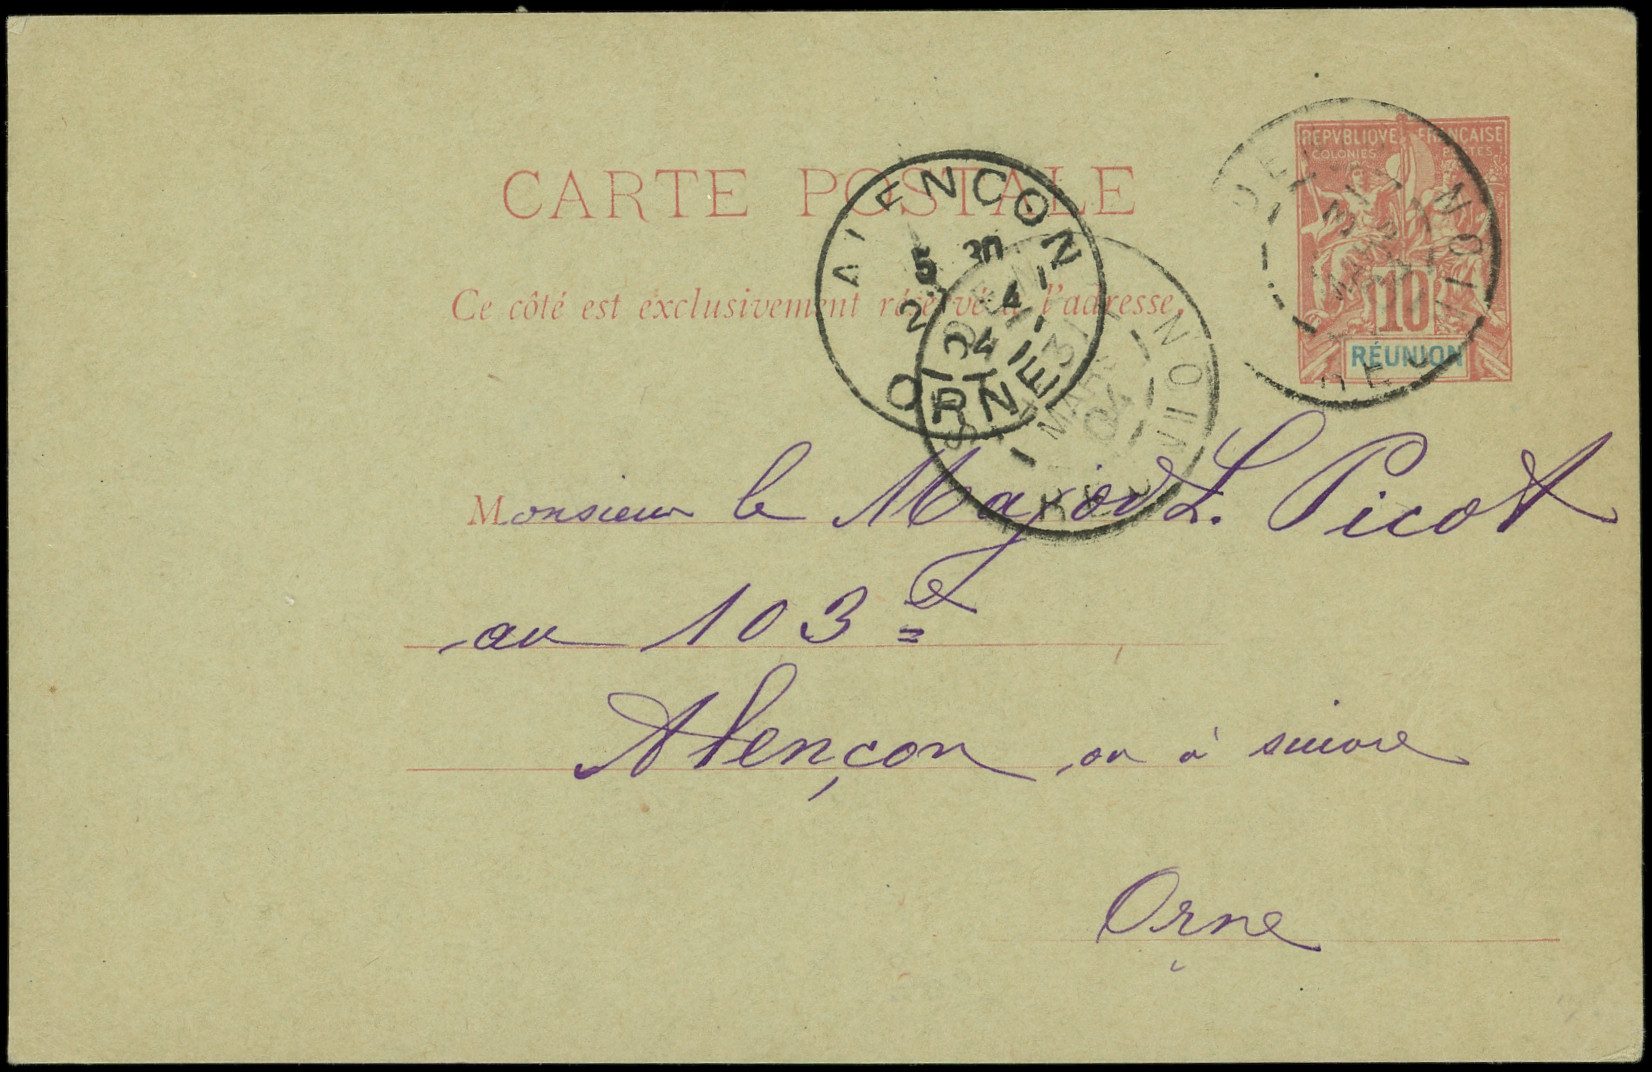 REPVBLIQVE FRANÇAISE
COLONIES POSTES
10
RÉUNION
CARTE POSTALE
Ce côté est exclusivement réservé à l'adresse.
ALENÇON
5 30
2 4
04
ORNE
31
MARS
04
RÉUNION
Monsieur le Major L. Picot
au 103e
Alençon ou à suivre
Orne